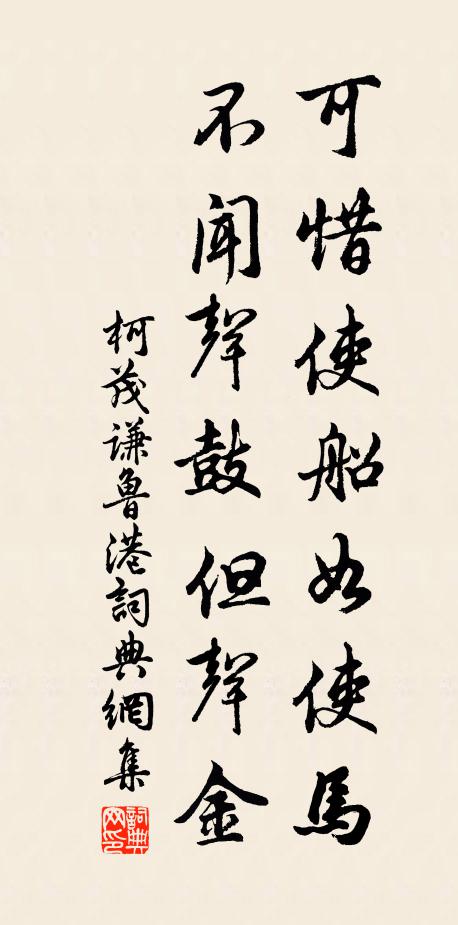 可惜使船如使馬
不聞聲鼓但聲金
柯茂謙魯港詞典網集
詞典網印